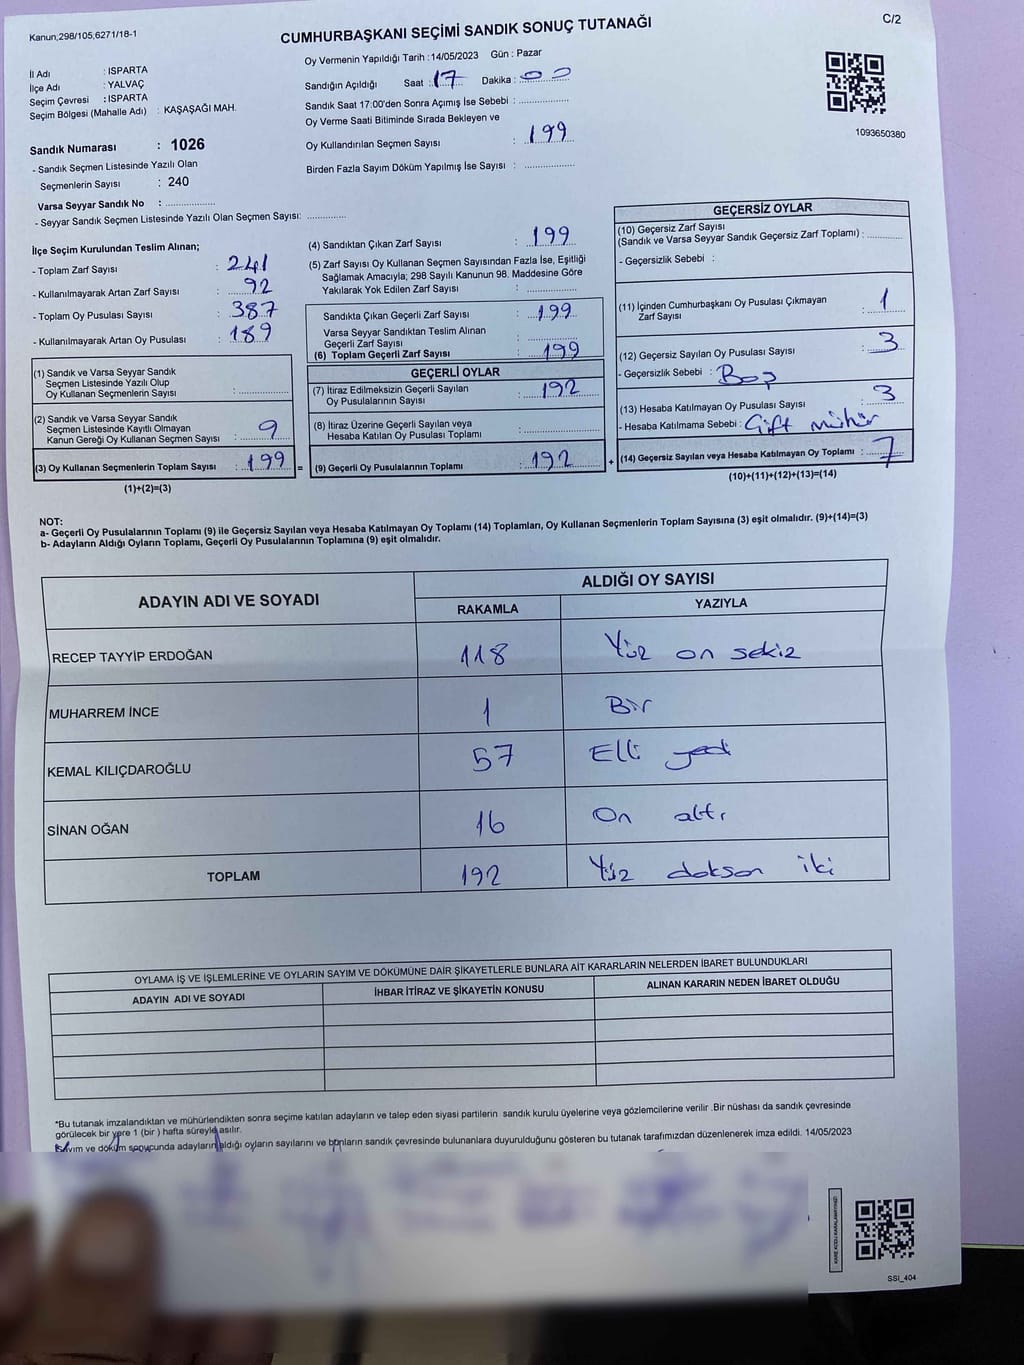 Kanun;298/105,6271/18-1
C/2
CUMHURBAŞKANI SEÇİMİ SANDIK SONUÇ TUTANAĞI
Oy Vermenin Yapıldığı Tarih :14/05/2023 Gün : Pazar
İl Adı : ISPARTA
İlçe Adı : YALVAÇ
Seçim Çevresi : ISPARTA
Seçim Bölgesi (Mahalle Adı) : KAŞAŞAĞI MAH.
Sandığın Açıldığı Saat : 17 Dakika : 00
Sandık Saat 17:00'den Sonra Açımış İse Sebebi :
Oy Verme Saati Bitiminde Sırada Bekleyen ve
Oy Kullandırılan Seçmen Sayısı : 199
Birden Fazla Sayım Döküm Yapılmış İse Sayısı :
1093650380
Sandık Numarası : 1026
- Sandık Seçmen Listesinde Yazılı Olan
Seçmenlerin Sayısı : 240
Varsa Seyyar Sandık No :
- Seyyar Sandık Seçmen Listesinde Yazılı Olan Seçmen Sayısı:
İlçe Seçim Kurulundan Teslim Alınan;
- Toplam Zarf Sayısı : 241
- Kullanılmayarak Artan Zarf Sayısı : 92
- Toplam Oy Pusulası Sayısı : 387
- Kullanılmayarak Artan Oy Pusulası : 189
(1) Sandık ve Varsa Seyyar Sandık
Seçmen Listesinde Yazılı Olup
Oy Kullanan Seçmenlerin Sayısı :
(2) Sandık ve Varsa Seyyar Sandık
Seçmen Listesinde Kayıtlı Olmayan
Kanun Gereği Oy Kullanan Seçmen Sayısı : 9
(3) Oy Kullanan Seçmenlerin Toplam Sayısı : 199 =
(1)+(2)=(3)
(4) Sandıktan Çıkan Zarf Sayısı : 199
(5) Zarf Sayısı Oy Kullanan Seçmen Sayısından Fazla İse, Eşitliği
Sağlamak Amacıyla; 298 Sayılı Kanunun 98. Maddesine Göre
Yakılarak Yok Edilen Zarf Sayısı :
Sandıkta Çıkan Geçerli Zarf Sayısı : 199
Varsa Seyyar Sandıktan Teslim Alınan
Geçerli Zarf Sayısı :
(6) Toplam Geçerli Zarf Sayısı : 199
GEÇERLİ OYLAR
(7) İtiraz Edilmeksizin Geçerli Sayılan
Oy Pusulalarının Sayısı : 192
(8) İtiraz Üzerine Geçerli Sayılan veya
Hesaba Katılan Oy Pusulası Toplamı :
(9) Geçerli Oy Pusulalarının Toplamı : 192 +
GEÇERSİZ OYLAR
(10) Geçersiz Zarf Sayısı
(Sandık ve Varsa Seyyar Sandık Geçersiz Zarf Toplamı) :
- Geçersizlik Sebebi :
(11) İçinden Cumhurbaşkanı Oy Pusulası Çıkmayan
Zarf Sayısı : 1
(12) Geçersiz Sayılan Oy Pusulası Sayısı : 3
- Geçersizlik Sebebi : Boş
(13) Hesaba Katılmayan Oy Pusulası Sayısı : 3
- Hesaba Katılmama Sebebi : Çift mühür
(14) Geçersiz Sayılan veya Hesaba Katılmayan Oy Toplamı : 7
(10)+(11)+(12)+(13)=(14)
NOT:
a- Geçerli Oy Pusulalarının Toplamı (9) ile Geçersiz Sayılan veya Hesaba Katılmayan Oy Toplamı (14) Toplamları, Oy Kullanan Seçmenlerin Toplam Sayısına (3) eşit olmalıdır. (9)+(14)=(3)
b- Adayların Aldığı Oyların Toplamı, Geçerli Oy Pusulalarının Toplamına (9) eşit olmalıdır.
ADAYIN ADI VE SOYADI
ALDIĞI OY SAYISI
RAKAMLA YAZIYLA
RECEP TAYYİP ERDOĞAN 118 Yüz on sekiz
MUHARREM İNCE 1 Bir
KEMAL KILIÇDAROĞLU 57 Elli yedi
SİNAN OĞAN 16 On altı
TOPLAM 192 Yüz doksan iki
OYLAMA İŞ VE İŞLEMLERİNE VE OYLARIN SAYIM VE DÖKÜMÜNE DAİR ŞİKAYETLERLE BUNLARA AİT KARARLARIN NELERDEN İBARET BULUNDUKLARI
ADAYIN ADI VE SOYADI İHBAR İTİRAZ VE ŞİKAYETİN KONUSU ALINAN KARARIN NEDEN İBARET OLDUĞU
*Bu tutanak imzalandıktan ve mühürlendikten sonra seçime katılan adayların ve talep eden siyasi partilerin sandık kurulu üyelerine veya gözlemcilerine verilir .Bir nüshası da sandık çevresinde
görülecek bir yere 1 (bir ) hafta süreyle asılır.
Sayım ve döküm sonucunda adayların aldığı oyların sayılarını ve bunların sandık çevresinde bulunanlara duyurulduğunu gösteren bu tutanak tarafımızdan düzenlenerek imza edildi. 14/05/2023
KARE KODU KARALAMAYINIZ!
SSİ_404